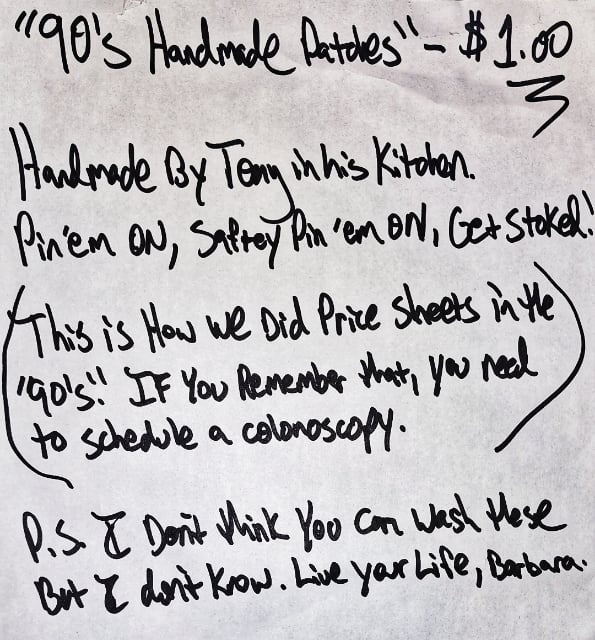 "90's Handmade Patches" - $1.00
Handmade By Tony in his Kitchen.
Pin 'em ON, Saftey Pin 'em ON, Get Stoked!
(This is How we Did Price Sheets in the
"90's". IF You Remember that, you need
to schedule a colonoscopy.)
P.S. I Don't think You can wash these
But I don't know. Live your Life, Barbara.